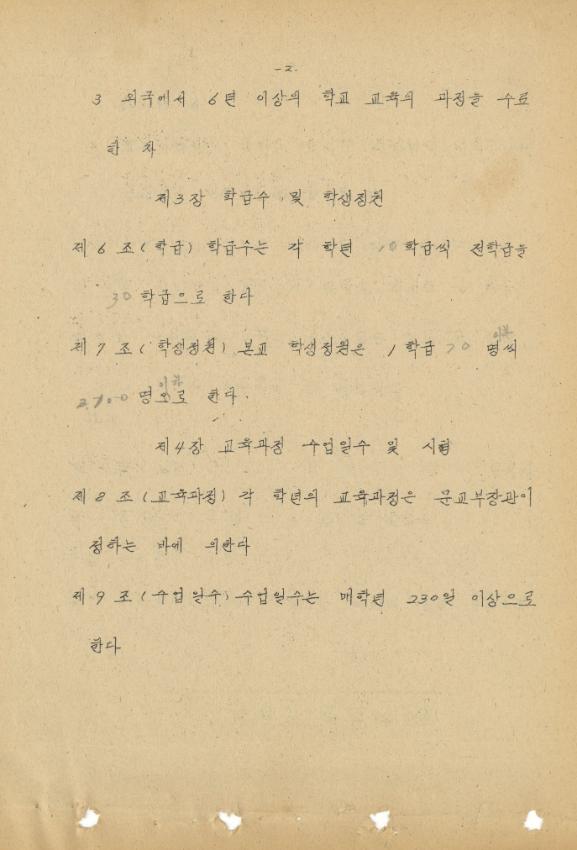 -2-
3 외국에서 6년 이상의 학교 교육의 과정을 수료
한 자
제3장 학급수 및 학생정원
제 6 조 (학급) 학급수는 각 학년 10 학급씩 전학급을
30 학급으로 한다
제 7 조 (학생정원) 본교 학생정원은 1 학급 70 명씩
이하
2100 명으로 한다.
이하
제4장 교육과정 수업일수 및 시험
제 8 조 (교육과정) 각 학년의 교육과정은 문교부장관이
정하는 바에 의한다
제 9 조 (수업일수) 수업일수는 매학년 230일 이상으로
한다